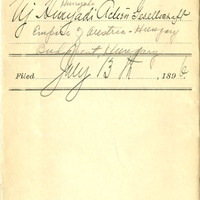 Hunyadi
Uj Hunyadi Actien Gesellschaft
Empire of Austria-Hungary
Budapest, Hungary
Filed July 13th, 1896.